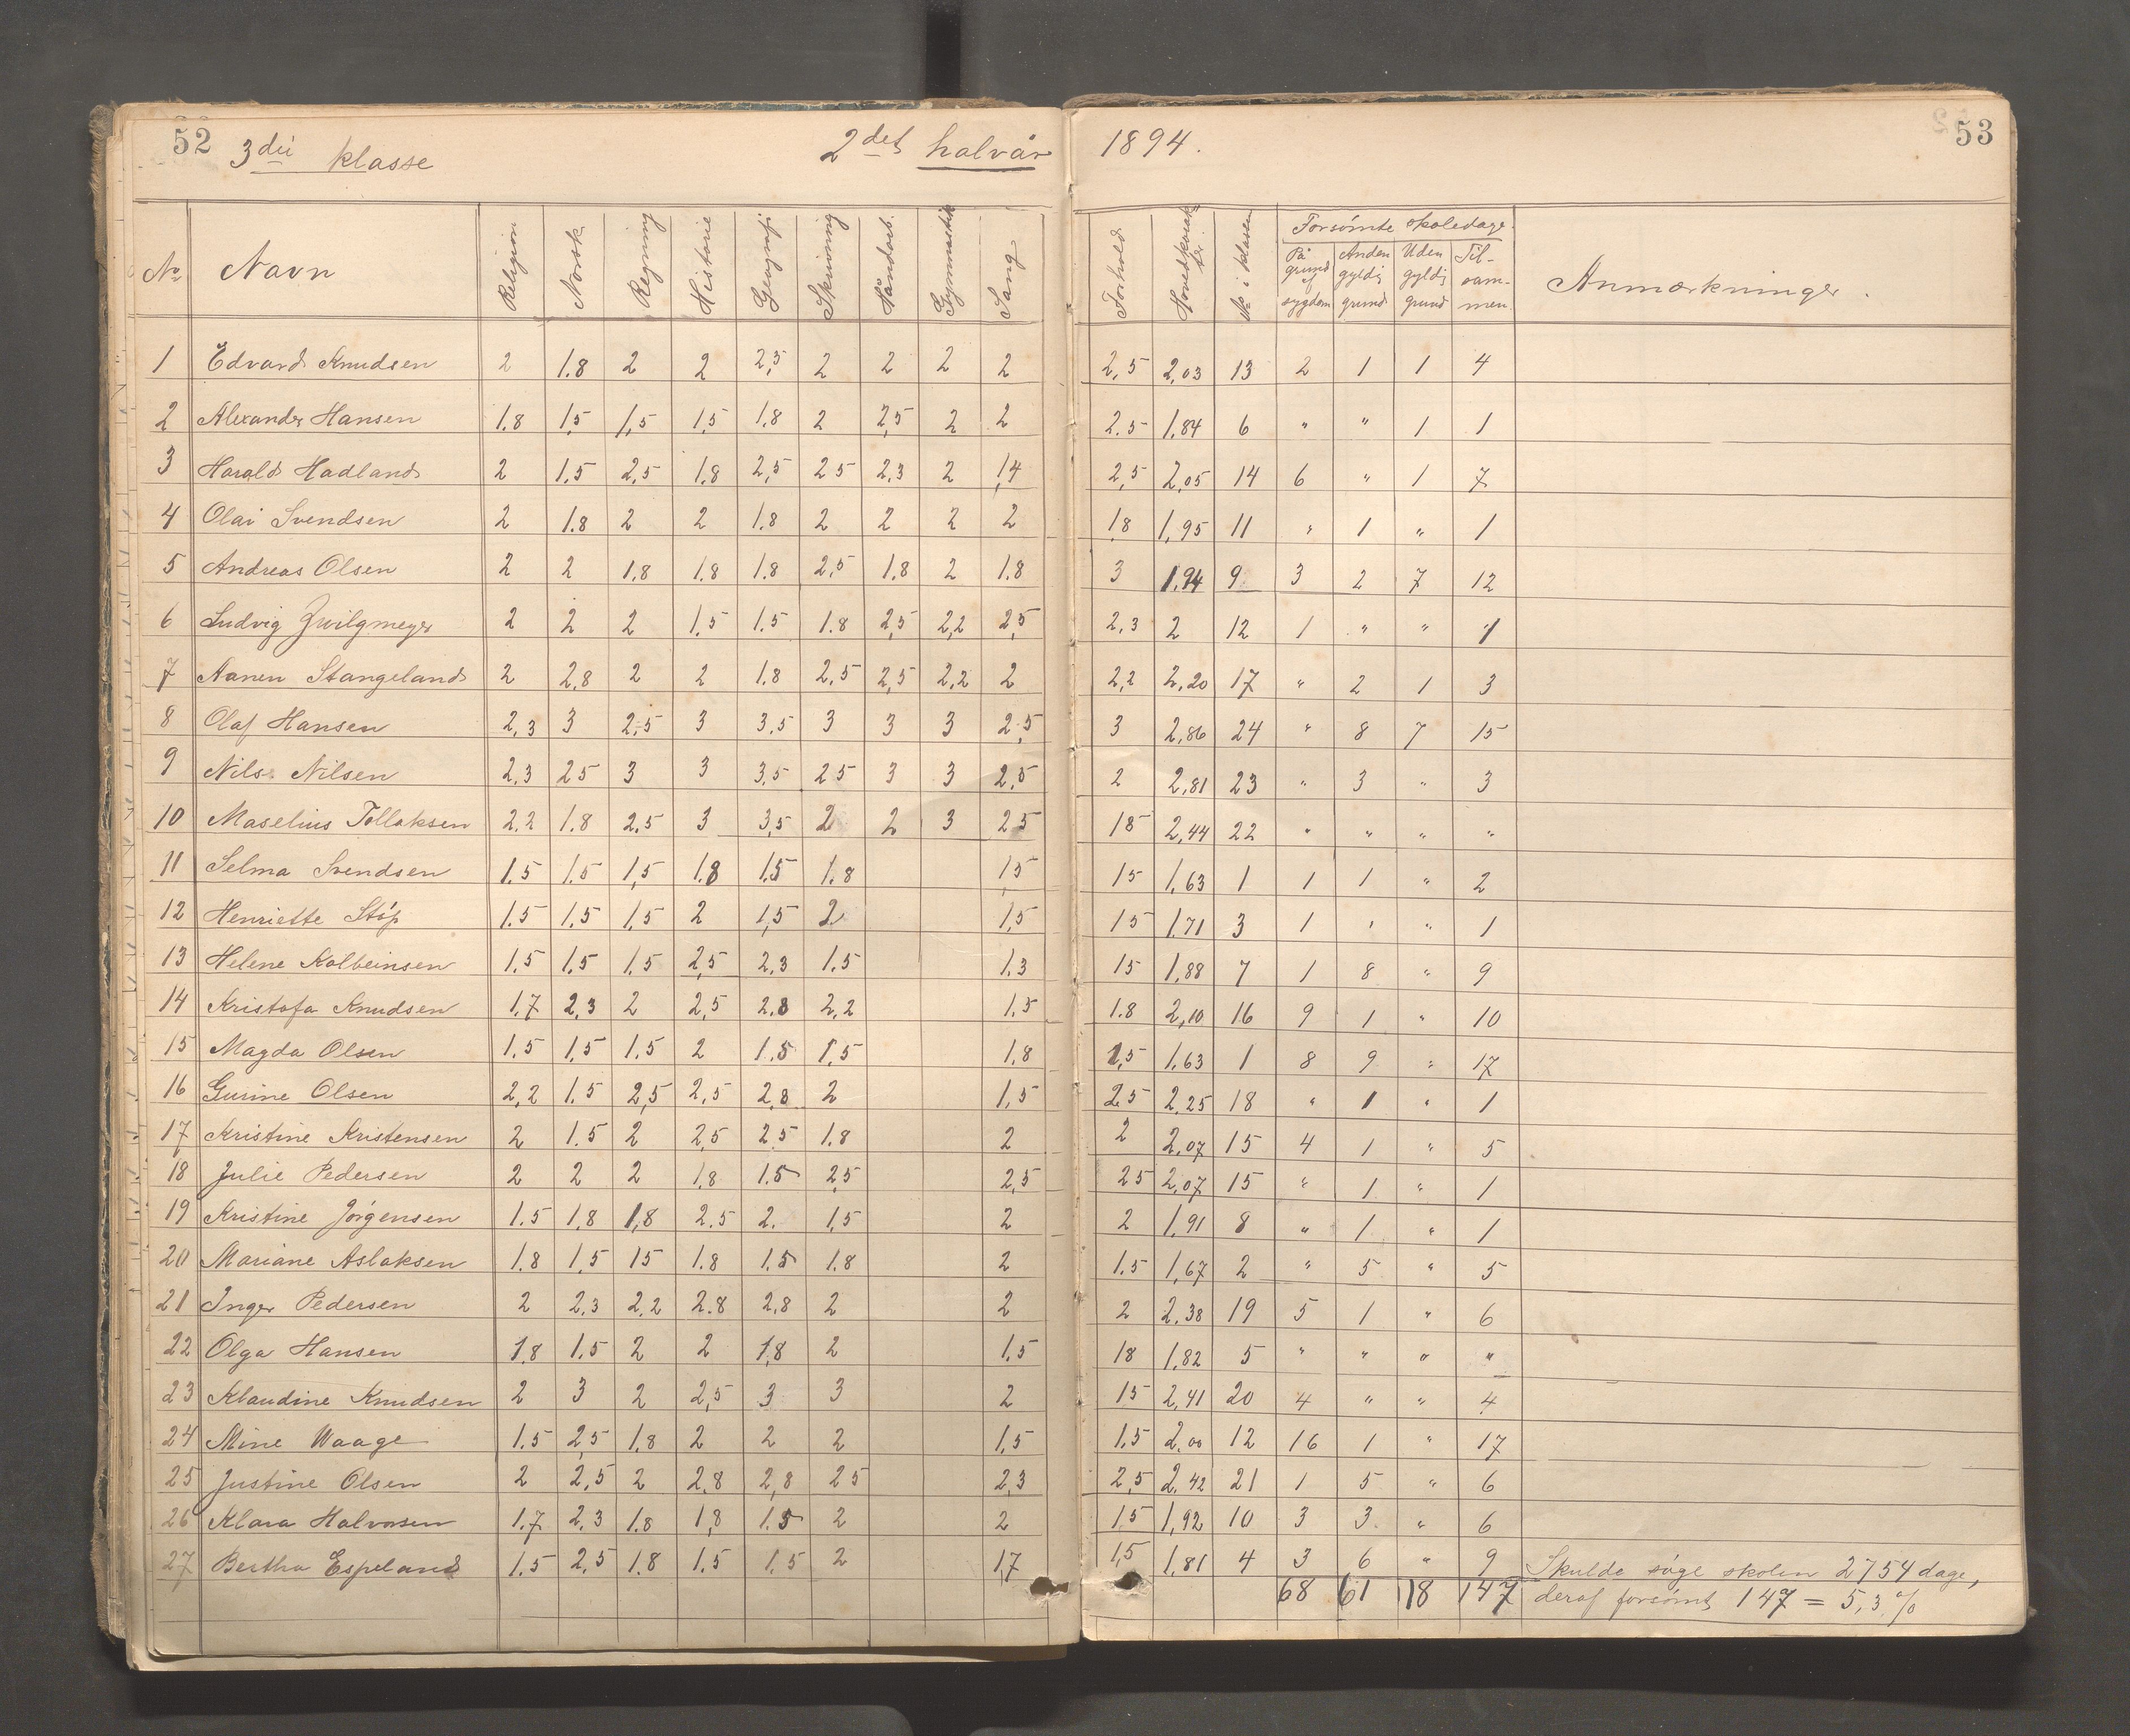 52 3die klasse 2det halvår 1894. 53
No Navn Religion Norsk Regning Historie Geografi Skrivning Håndarb. Gymnastik Sang Forhold Hovedkarakter No i klassen Forsømte skoledage. På grund af sygdom Anden gyldig grund Uden gyldig grund Tilsammen. Anmærkninger.
1 Edvard Knudsen 2 1.8 2 2 2,5 2 2 2 2 2,5 2,03 13 2 1 1 4
2 Alexander Hansen 1.8 1,5 1,5 1,5 1.8 2 2,5 2 2 2.5 1,84 6 " " 1 1
3 Harald Hadland 2 1.5 2,5 1,8 2,5 25 2,3 2 1,4 2,5 2,05 14 6 " 1 7
4 Olai Svendsen 2 1.8 2 2 1.8 2 2 2 2 1,8 1,95 11 " 1 " 1
5 Andreas Olsen 2 2 1,8 1.8 1.8 2,5 1.8 2 1.8 3 1,94 9 3 2 7 12
6 Ludvig Zwilgmeyer 2 2 2 1,5 1.5 1.8 2,5 2,2 2,5 2,3 2 12 1 " " 1
7 Aanen Stangeland 2 2,8 2 2 1.8 2,5 2,5 2,2 2 2,2 2,20 17 " 2 1 3
8 Olaf Hansen 2,3 3 2,5 3 3,5 3 3 3 2,5 3 2,86 24 " 8 7 15
9 Nils Nilsen 2,3 25 3 3 3,5 25 3 3 2,5 2 2,81 23 " 3 " 3
10 Maselius Tollaksen 2,2 1.8 2,5 3 3,5 2 2 3 25 18 2,44 22 " " " "
11 Selma Svendsen 1.5 1.5 1,5 1.8 1.5 1.8 1,5 15 1,63 1 1 1 " 2
12 Henriette Støp 1.5 1,5 1,5 2 1,5 2 1,5 15 1.71 3 1 " " 1
13 Helene Kolbeinsen 1,5 1,5 1,5 2,5 2,3 1.5 1.3 15 1,88 7 1 8 " 9
14 Kristofa Knudsen 1,7 2,3 2 2,5 2.8 2,2 1.5 1.8 2,10 16 9 1 " 10
15 Magda Olsen 1.5 1,5 1.5 2 1.5 1,5 1,8 1,5 1,63 1 8 9 " 17
16 Gurine Olsen 2,2 1.5 2,5 2,5 2,8 2 1,5 2.5 2,25 18 " 1 " 1
17 Kristine Kristensen 2 1.5 2 2,5 25 1.8 2 2 2,07 15 4 1 " 5
18 Julie Pedersen 2 2 2 1,8 1.5 2,5 2,5 25 2,07 15 " 1 " 1
19 Kristine Jørgensen 1.5 1,8 1,8 2.5 2. 1,5 2 2 1,91 8 " 1 " 1
20 Mariane Aslaksen 1.8 1,5 15 1.8 1.5 1.8 2 1.5 1,67 2 " 5 " 5
21 Inger Pedersen 2 2,3 2,2 2.8 2,8 2 2 2 2,38 19 5 1 " 6
22 Olga Hansen 1,8 1.5 2 2 1,8 2 1,5 18 1,82 5 " " " "
23 Klaudine Knudsen 2 3 2 2,5 3 3 2 15 2,41 20 4 " " 4
24 Mine Waage 1.5 2,5 1.8 2 2 2 1,5 1.5 2,00 12 16 1 " 17
25 Justine Olsen 2 2,5 2 2.8 2,8 25 2,3 2,5 2,42 21 1 5 " 6
26 Klara Halvorsen 1.7 2,3 1.8 1,8 1.5 2 2 1,5 1,92 10 3 3 " 6
27 Bertha Espeland 1.5 2,5 1.8 1.5 1.5 2 1,7 1,5 1,81 4 3 6 " 9 Skulde søge skolen 2754 dage,
68 61 18 147 deraf forsømt 147 = 5,3 %